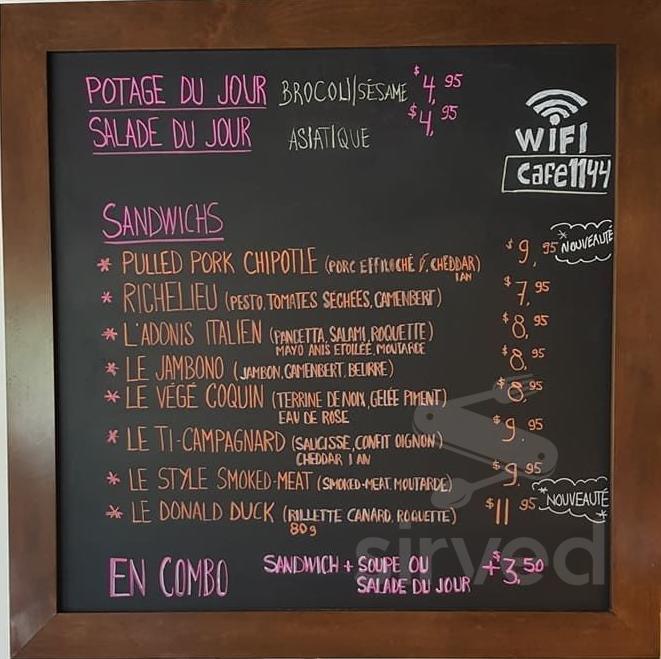 POTAGE DU JOUR BROCOLI/SÉSAME $4,95
SALADE DU JOUR ASIATIQUE $4,95
WIFI
cafe1144
SANDWICHS
* PULLED PORK CHIPOTLE (PORC EFFILOCHÉ F. CHEDDAR) $9,95 *NOUVEAUTÉ
1 AN
* RICHELIEU (PESTO, TOMATES SÉCHÉES, CAMENBERT) $7,95
* L'ADONIS ITALIEN (PANCETTA, SALAMI, ROQUETTE) $8,95
MAYO ANIS ETOILÉE, MOUTARDE
* LE JAMBONO (JAMBON, CAMENBERT, BEURRE) $8,95
* LE VÉGÉ COQUIN (TERRINE DE NOIX, GELÉE PIMENT) $8,95
EAU DE ROSE
* LE TI-CAMPAGNARD (SAUCISSE, CONFIT OIGNON) $9,95
CHEDDAR 1 AN
* LE STYLE SMOKED-MEAT (SMOKED-MEAT, MOUTARDE) $9,95
* LE DONALD DUCK (RILLETTE CANARD, ROQUETTE) $11,95 *NOUVEAUTÉ*
80g
EN COMBO SANDWICH + SOUPE OU +$3,50
SALADE DU JOUR
sirved